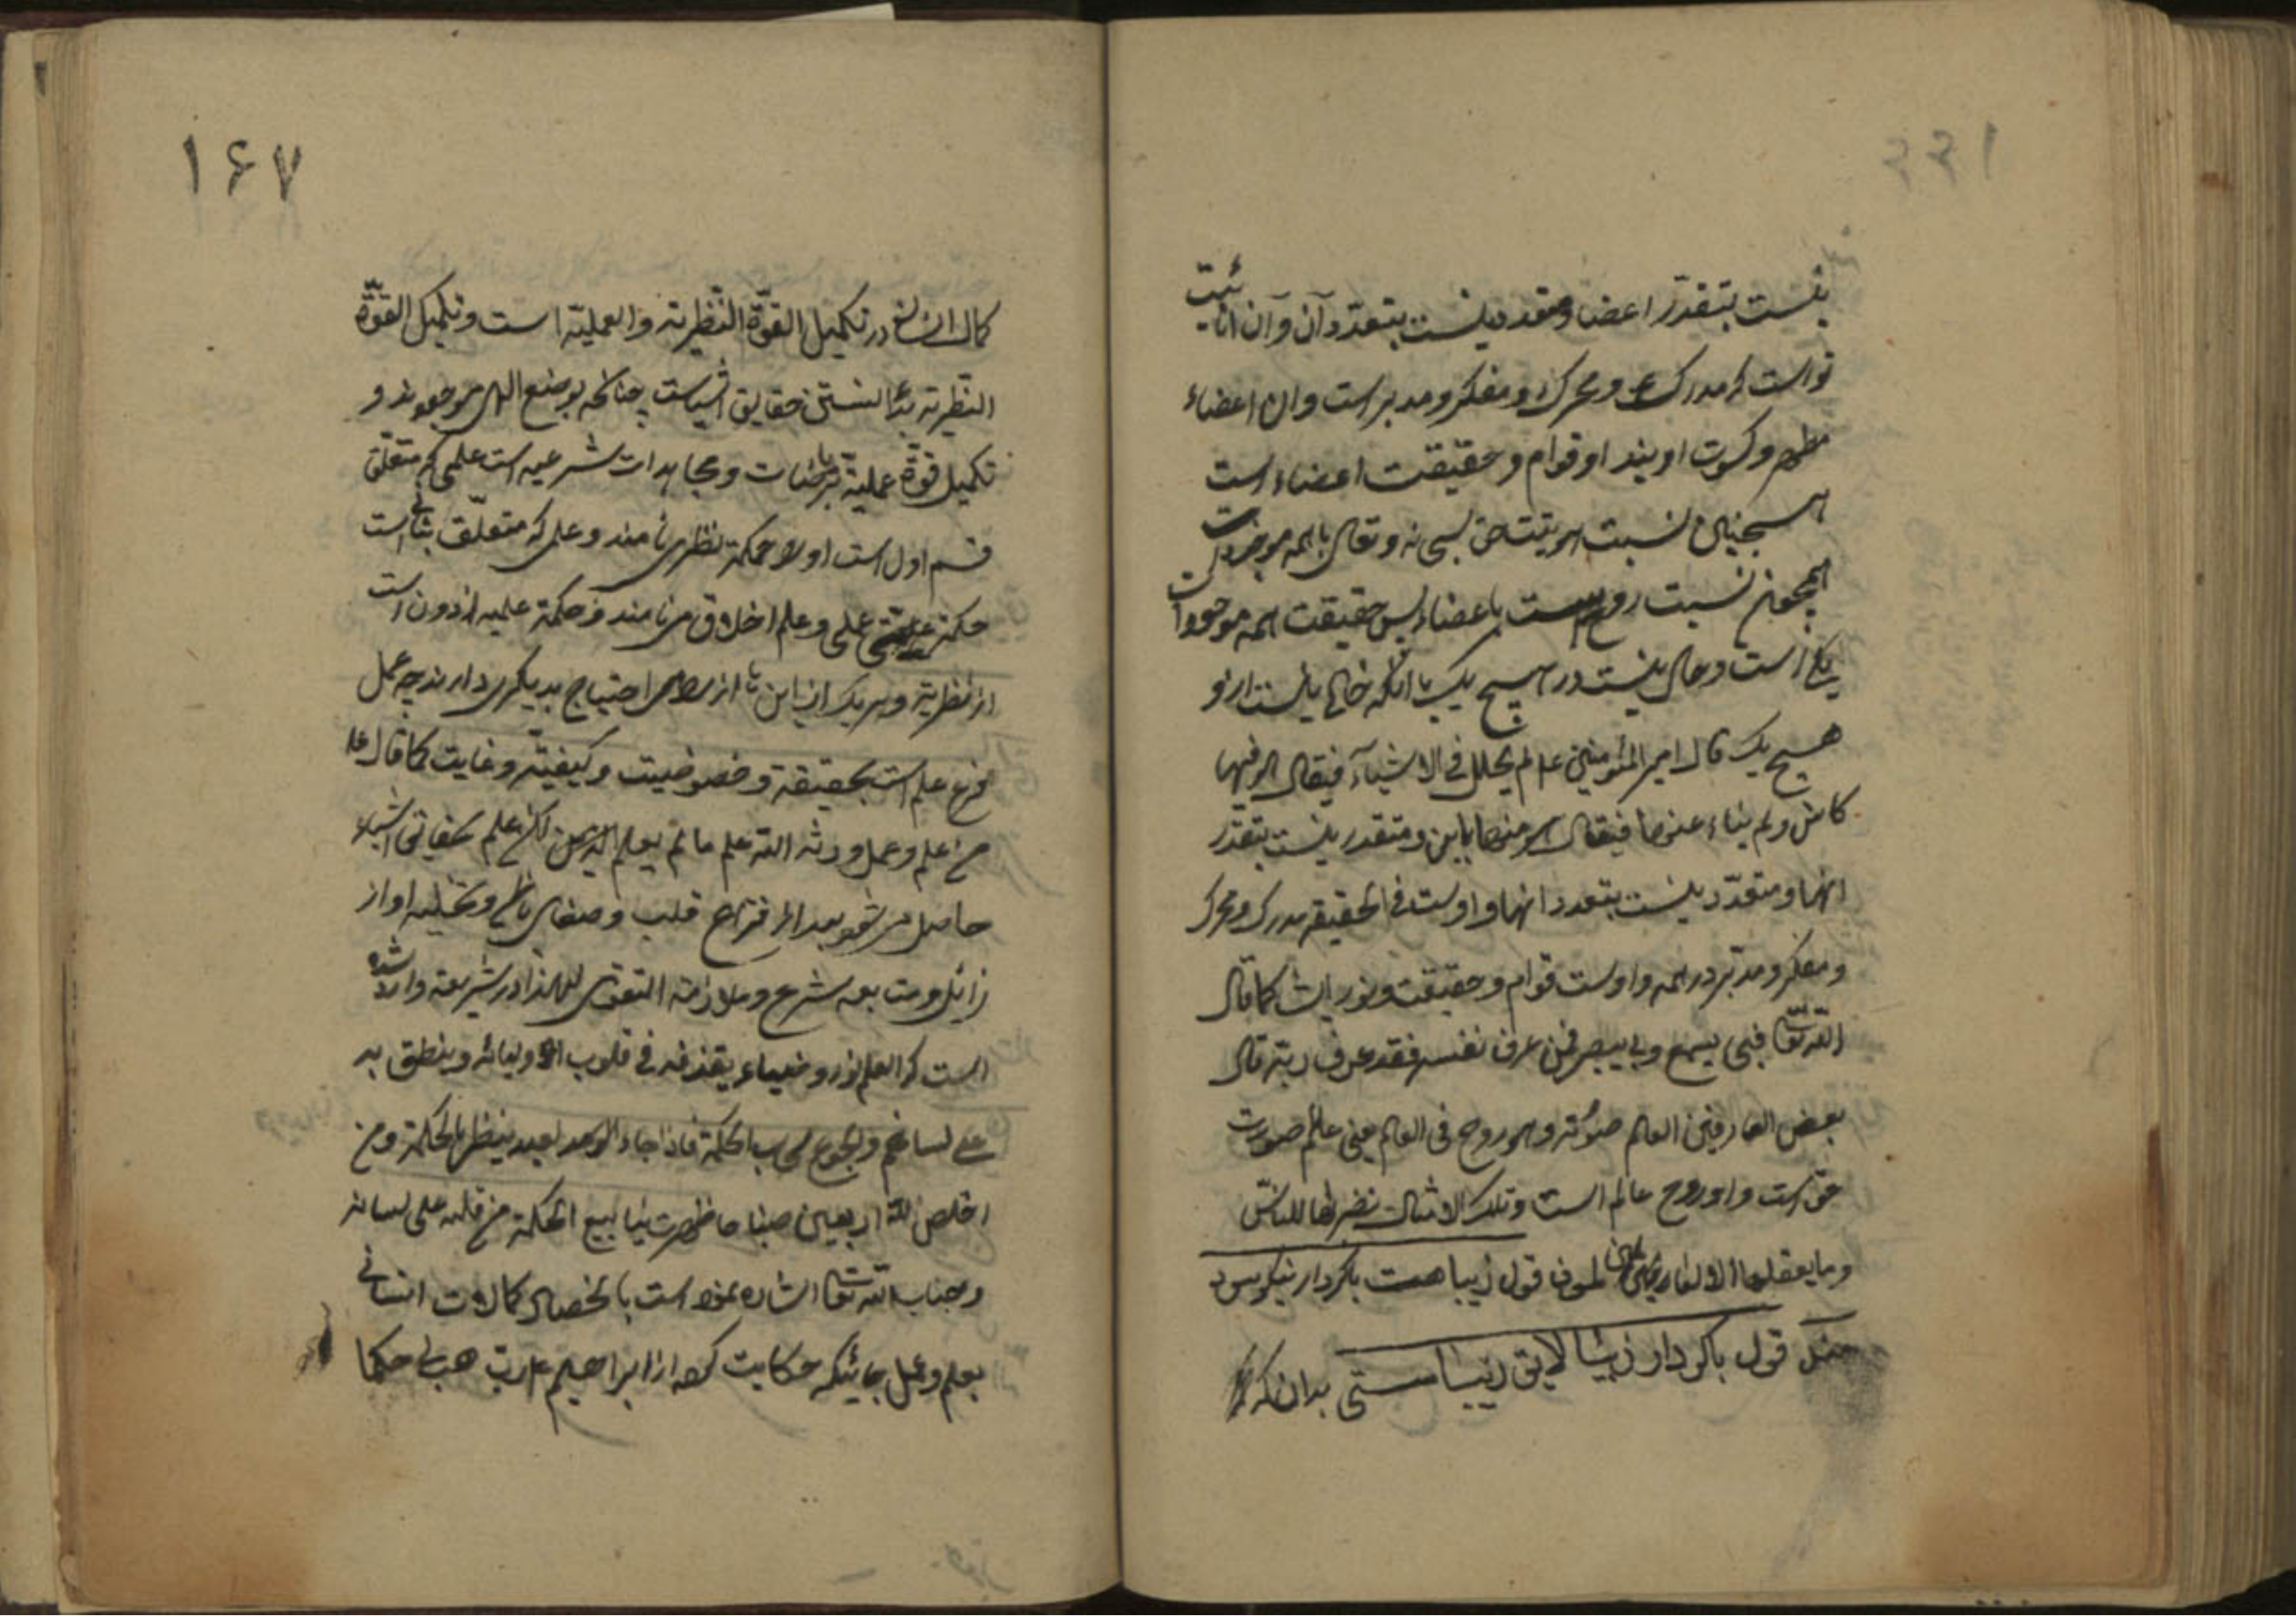 نیست بتقدّر اعضا و متعدد نیست بتعدّد آن و آن انانیّت
تو است که مدرک و محرک و مفکر و مدبر است و ان اعضاء
مظهر و کسوت اویند او قوام و حقیقت اعضاء است
همچنین نسبت هویّت حق سبحانه و تعالی با همه موجودات
همچون نسبت روح است باعضاء پس حقیقت همه موجودات
یکی است و حال نیست در هیچ یک با آنکه خالی نیست ازو
هیچ یک قال امیر المؤمنین ع لم یحلل فی الاشیاء فیقال هو فیها
کائن و لم یناء عنها فیقال هو منها باین و متقدر نیست بتقدّر
انها و متعدّد نیست بتعدد انها و اوست فی الحقیقة مدرک و محرک
و مفکر و مدبّر در همه و اوست قوام و حقیقت و نور اینها کما قال
الله تعالی فبی یسمع و بی یبصر فمن عرف نفسه فقد عرف ربّه قال
بعض العارفین العالم صورته و هو روح فی العالم یعنی عالم صورت
حق است و او روح عالم است و تلک الامثال نضربها للناس
و ما یعقلها الا العالمون قول زیبا هست باکردار نیکو سود
قول باکردار زیبا لایق زیباستی بدان که
۱۶۷
کمال انسانی در تکمیل القوّة النّظریّه و العملیّه است و تکمیل القوّة
النّظریّه بدانستن حقایق اشیاست چنانکه بوضع الهی موجودند و
تکمیل قوّة عملیّة بریاضات و مجاهدات شرعیه است علمی که متعلّق
قسم اول است او را حکمة نظری نامند و علمی که متعلّق بثانی است
حکمة عملی و علم اخلاق می نامند و حکمة عملیه ازدون است
از نظریّة و هر یک از این احتیاج بدیگری دارند چه عمل
فرع علم است بحقیقة و خصوصیت و کیفیّة و غایت کما قال ع
من علم و عمل ورثه الله علم ما لم یعلم لیکن علم بحقایق اشیاء
حاصل می شود بعد از فراغ قلب و صفای باطن و تخلیه او از
رذائل و متابعه شرع و ملازمة التقوی لهذا در شریعة وارد شده
است که العلم نور و ضیاء یقذفه فی قلوب اولیائه و ینطق به
علی لسانهم و الجوع سحاب الحکمة فاذا جاء العبد ینظر بالحکمة و من
اخلص لله اربعین صباحا ظهرت ینابیع الحکمة من قلبه علی لسانه
و جناب الله تعالی اشاره نموده است بانحصار کمالات انسانی
بعلم و عمل جائیکه حکایت کرده از ابراهیم ع رب هب لی حکما